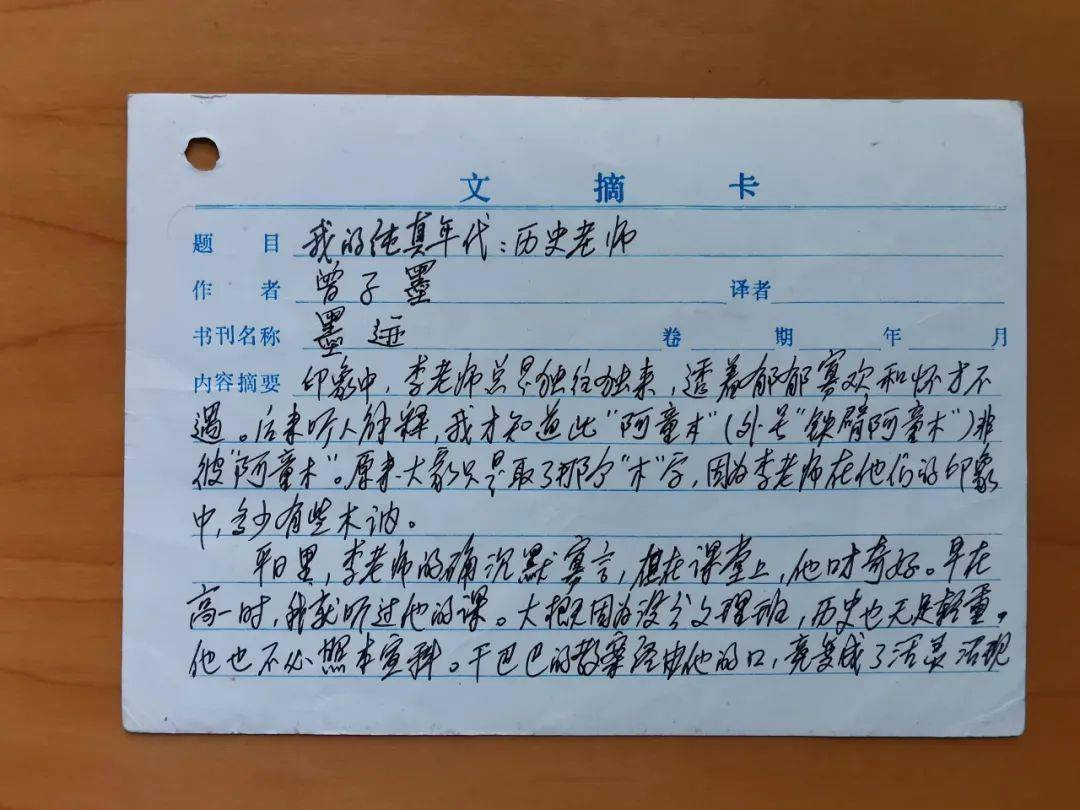 文 摘 卡
题 目 我的纯真年代：历史老师
作 者 曾子墨 译者
书刊名称 墨迹 卷 期 年 月
内容摘要 印象中，李老师总是独往独来，透着郁郁寡欢和怀才不
遇。后来听人解释，我才知道此“阿童木”（外号“铁臂阿童木”）非
彼“阿童木”。原来大家只是取了那个“木”字，因为李老师在他们的印象
中，多少有些木讷。
平日里，李老师的确沉默寡言，但在课堂上，他口才奇好。早在
高一时，我就听过他的课。大概因为没分文理班，历史也无足轻重，
他也不必照本宣科。干巴巴的教案经由他的口，竟变成了活灵活现